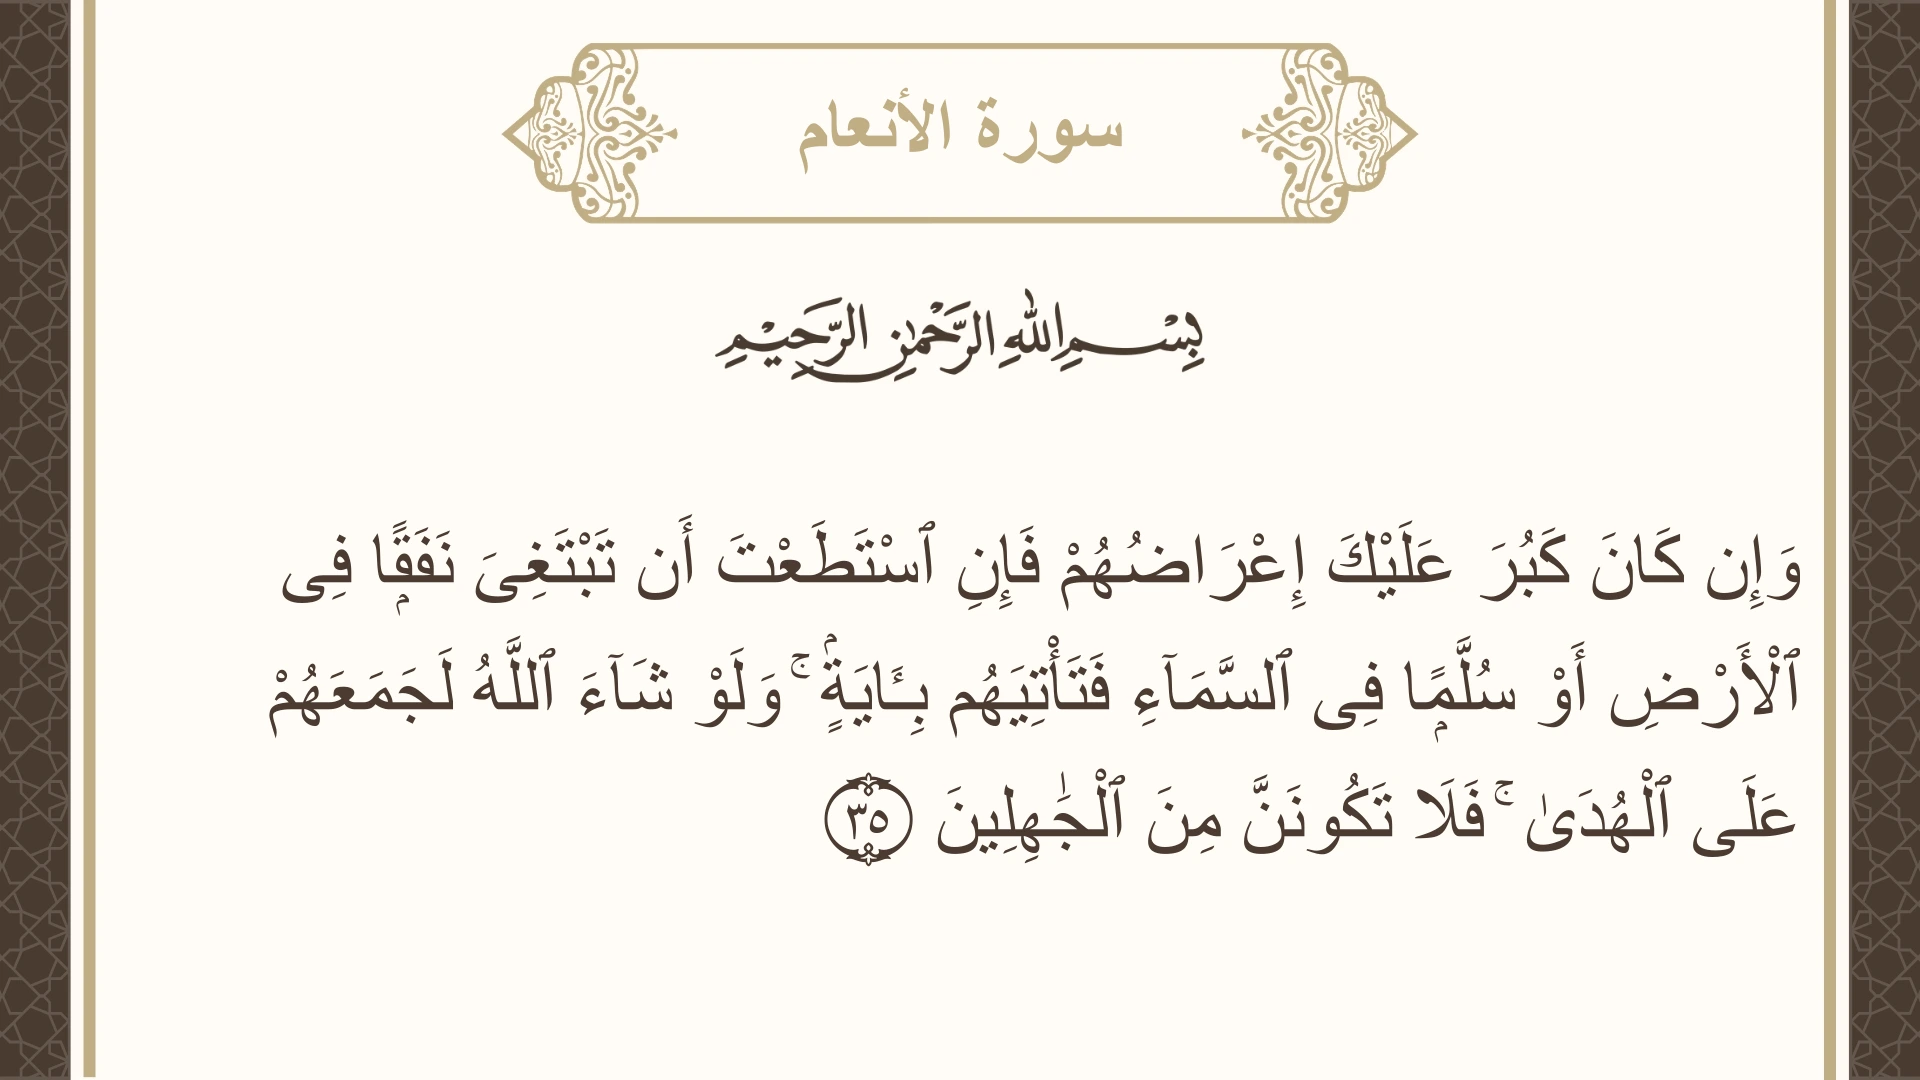 سورة الأنعام
بِسْمِ اللهِ الرَّحْمٰنِ الرَّحِيْمِ
وَإِن كَانَ كَبُرَ عَلَيْكَ إِعْرَاضُهُمْ فَإِنِ ٱسْتَطَعْتَ أَن تَبْتَغِىَ نَفَقًۭا فِى
ٱلْأَرْضِ أَوْ سُلَّمًۭا فِى ٱلسَّمَآءِ فَتَأْتِيَهُم بِـَٔايَةٍۢ ۚ وَلَوْ شَآءَ ٱللَّهُ لَجَمَعَهُمْ
عَلَى ٱلْهُدَىٰ ۚ فَلَا تَكُونَنَّ مِنَ ٱلْجَـٰهِلِينَ ٣٥